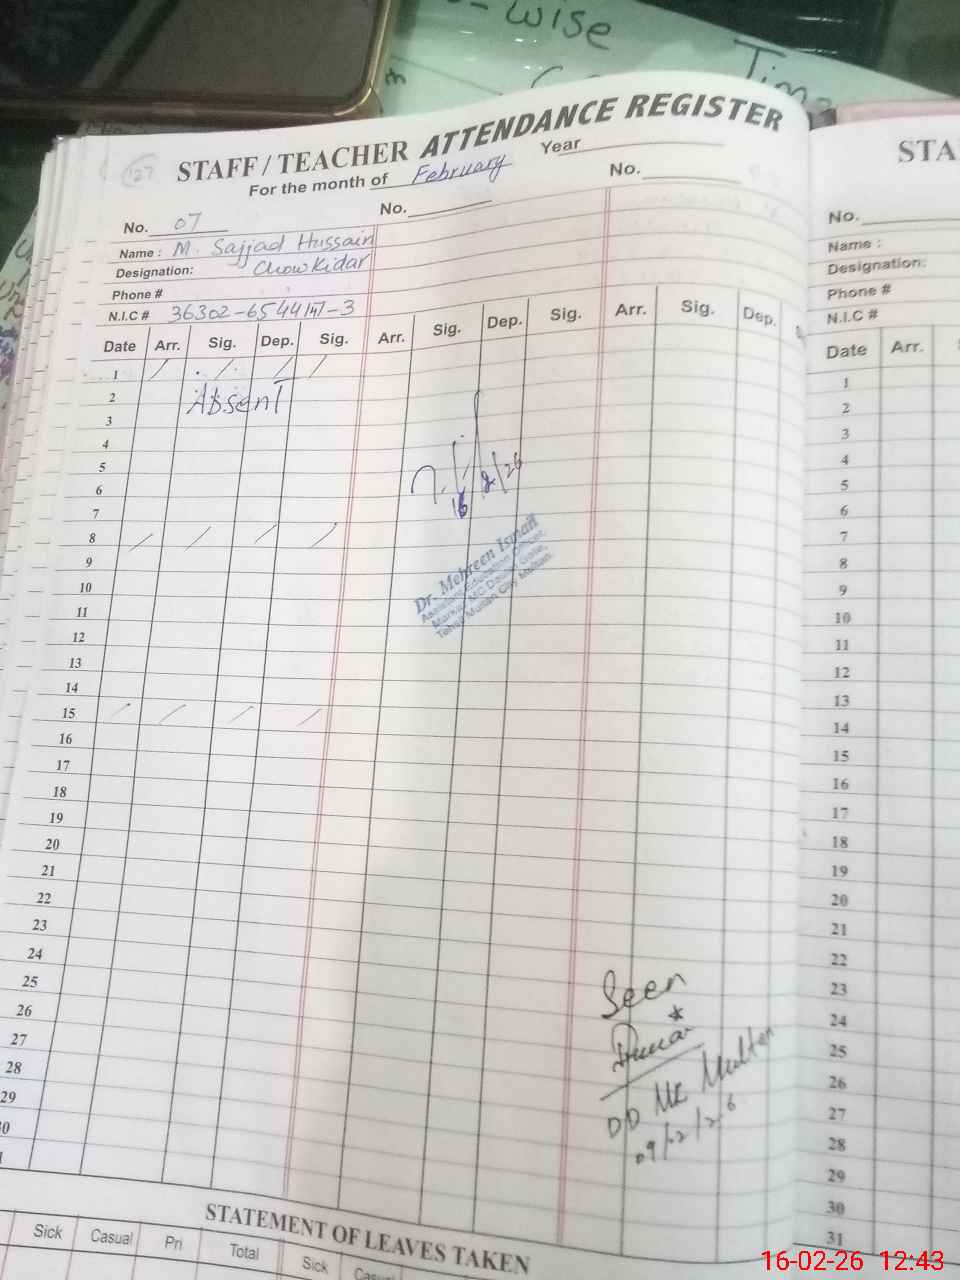 -wise
Time
127
STAFF / TEACHER ATTENDANCE REGISTER
For the month of February Year
No. 07 No. No.
Name : M. Sajjad Hussain
Designation: Chowkidar
Phone #
N.I.C # 36302-6544
Date Arr. Sig. Dep. Sig. Arr. Sig. Dep. Sig. Arr. Sig. Dep.
1
2 Absent
3
4
5
6
16/2/26
7
8
9
Dr. Mehreen Ismail
Assistant Education Officer,
Markaz MC Daulat Gate,
Tehsil Multan City Multan.
10
11
12
13
14
15
16
17
18
19
20
21
22
23
24
25
26
27
28
29
30
Seen
DD MC Multan
09/02/26
STATEMENT OF LEAVES TAKEN
Sick Casual Pri Total Sick Casual
STA
No.
Name :
Designation:
Phone #
N.I.C #
Date Arr.
1
2
3
4
5
6
7
8
9
10
11
12
13
14
15
16
17
18
19
20
21
22
23
24
25
26
27
28
29
30
31
16-02-26 12:43